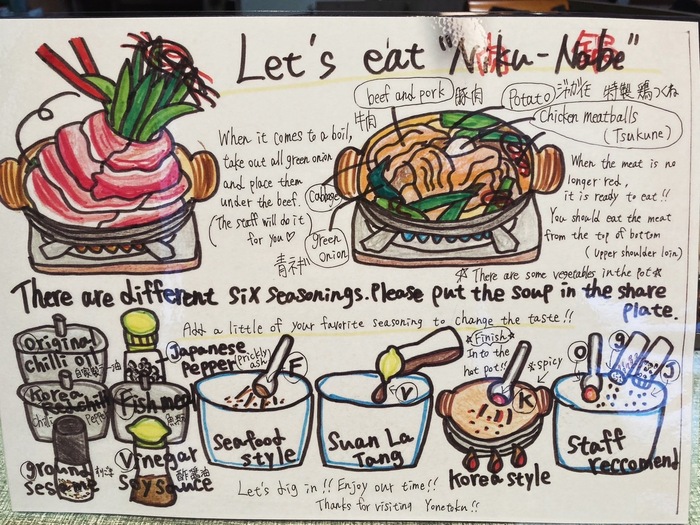 Let's eat "Niku-Nabe"
When it comes to a boil,
take out all green onion
and place them
under the beef.
(The staff will do it
for you ♡
beef and pork
豚肉
牛肉
Potato
ジャガイモ
特製鶏つくね
Chicken meatballs
(Tsukune)
Cabbage
green
onion
When the meat is no
longer red,
it is ready to eat!!
You should eat the meat
from the top of bottom
(upper shoulder loin)
☆ There are some vegetables in the pot ☆
There are different six seasonings. Please put the soup in the share
plate.
Add a little of your favorite seasoning to change the taste!!
Original
chilli oil
Japanese
Pepper
(Prickly
ash)
Korea
Fish meal
ground
sesame
Vinegar
soy sauce
F
Seafood
style
V
Suan La
Tang
☆Finish☆
Into the
hot pot!!
*spicy
K
Korea style
O
g
J
Staff
reccomend
Let's dig in!! Enjoy our time!!
Thanks for visiting Yonetoku!!